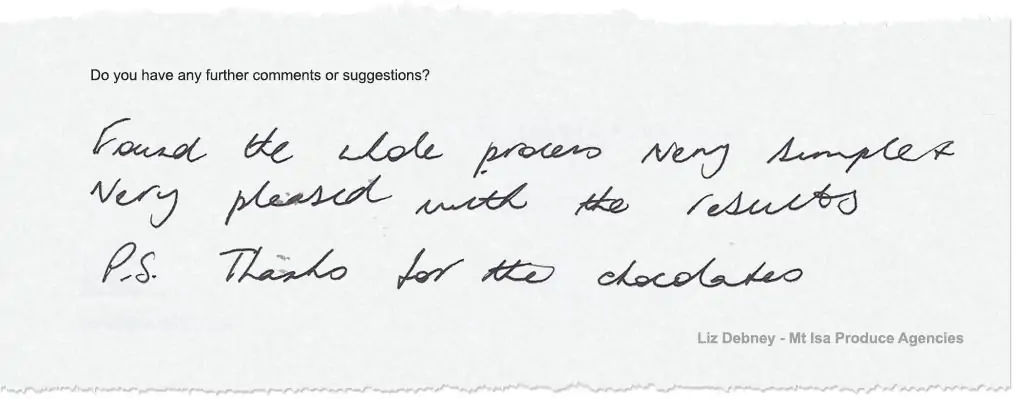 Do you have any further comments or suggestions?
Found the whole process very simple &
very pleased with the results
P.S. Thanks for the chocolates
Liz Debney - Mt Isa Produce Agencies